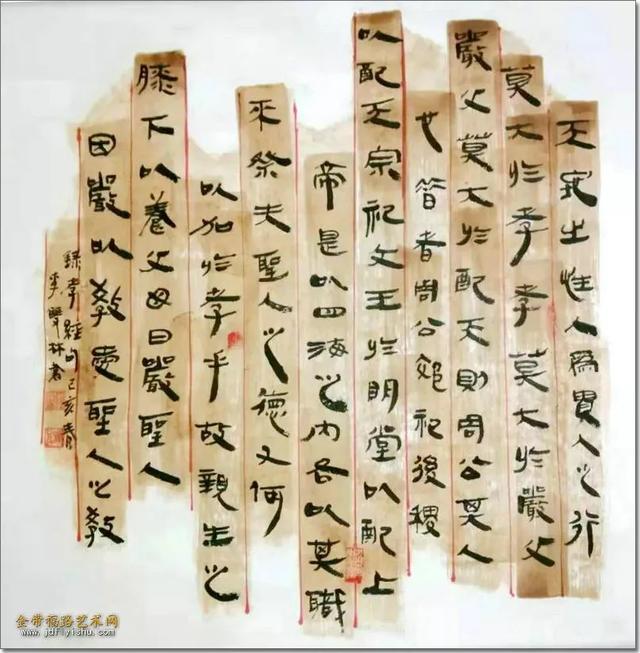 天地之性人爲貴人之行
莫大於孝孝莫大於嚴父
嚴父莫大於配天則周公其人
也昔者周公郊祀後稷
以配天宗祀文王於明堂以配上
帝是以四海之內各以其職
來祭夫聖人之德又何
以加於孝乎故親生之
膝下以養父母日嚴聖人
因嚴以教愛聖人之教
錄孝經句己亥春
林書
金带福路艺术网
www.jdflyishu.com